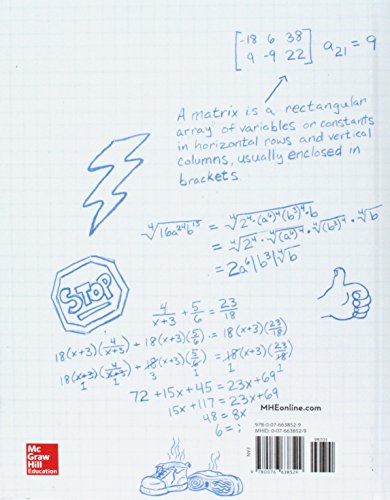 [-18 6 38
9 -9 22] a₂₁ = 9
A matrix is a rectangular
array of variables or constants
in horizontal rows and vertical
columns, usually enclosed in
brackets
⁴√16a²⁴b¹³ = ⁴√2⁴·(a⁶)⁴(b³)⁴·b
= ⁴√2⁴·⁴√(a⁶)⁴·⁴√(b³)⁴·⁴√b
= 2a⁶|b³|⁴√b
STOP
4/x+3 + 5/6 = 23/18
18(x+3)(4/x+3) + 18(x+3)(5/6) = 18(x+3)(23/18)
18(x+3)(4/x+3) + 18(x+3)(5/6) = 18(x+3)(23/18)
1 1 1 1
72 + 15x + 45 = 23x + 69
15x + 117 = 23x + 69
48 = 8x
6 = x
Mc
Graw
Hill
Education
MHEonline.com
978-0-07-663852-9
MHID: 0-07-663852-9
99701
NYF2
9 780076 638529